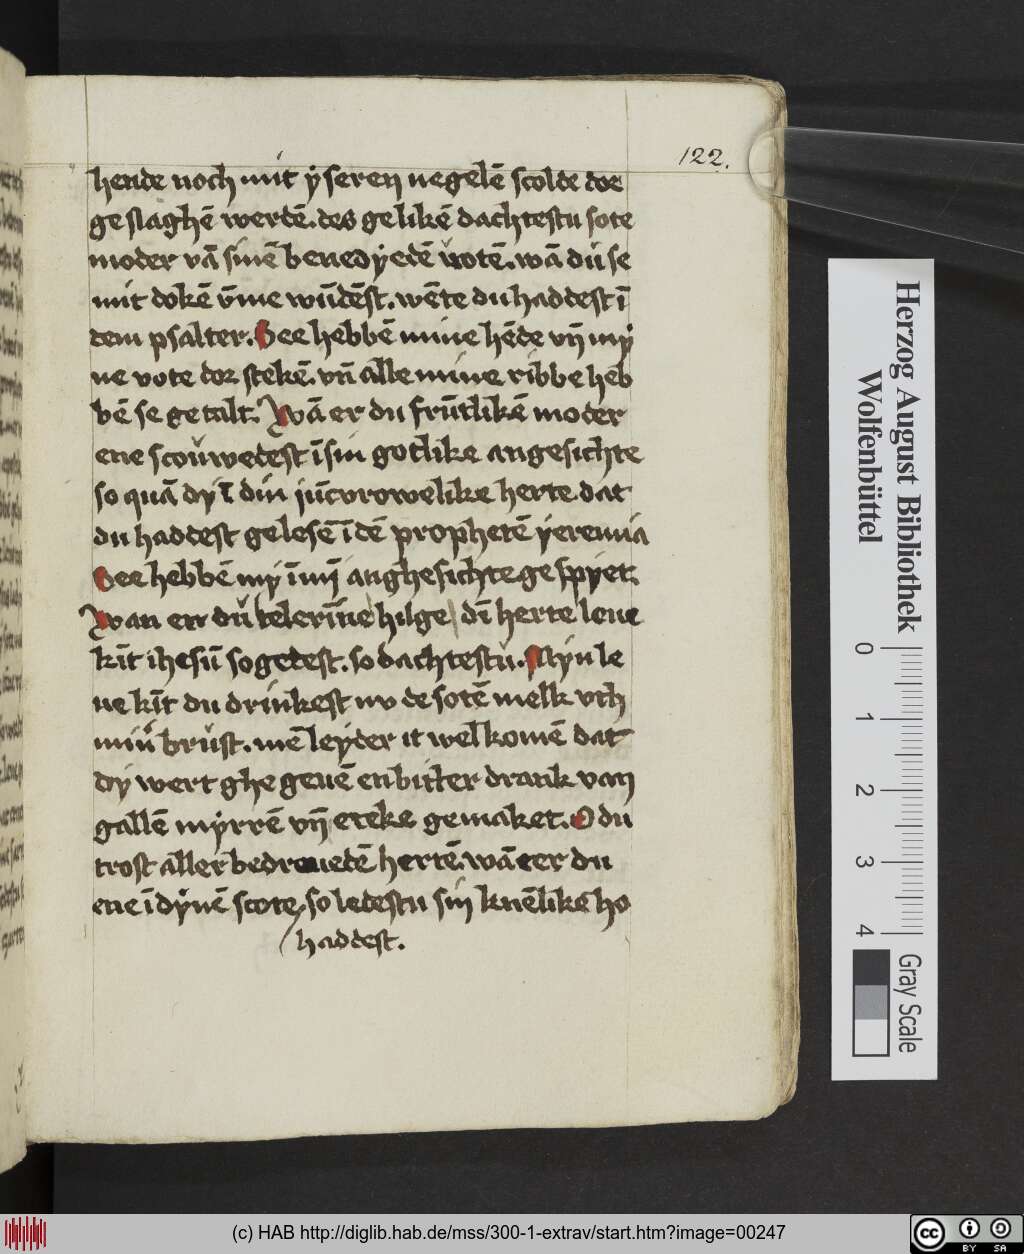 122.
hende noch mit yseren negelē scolde doe
geslaghē werdē. des gelikē dachtestu sote
moder vā sinē benedyedē votē. wā du se
mit dokē v̄me wūdēst. wēte du haddest ī
dem psalter. See hebbē mine hēde vn̄ my
ne vote dor stekē. vn̄ alle mine ribbe heb
bē se getalt. Wā er du frūtlikē moder
ene scouwedest ī sin gotlike angesichte
so quā dy ī din iūcvrowelike herte. dat
du haddest gelesē ī dē prophetē yeremia
See hebbē my ī mȳ anghesichte gespyet.
Wan er du telerīne hilge dī herte leue
kīt ihesū sogedest. so dachtestu. Myn le
ue kīt du drinkest nv de sotē melk vth
min̄ brust. mē leyder it welkomē dat
dy wert ghegeuē en bitter drank van
gallē myrrē vn̄ eteke gemaket. O du
trost aller bedreuedē hertē. wā eer du
ene ī dynē scote, so ledestu sin knēlike ho
haddest.
Herzog August Bibliothek
Wolfenbüttel
0 1 2 3 4
Gray Scale
(c) HAB http://diglib.hab.de/mss/300-1-extrav/start.htm?image=00247
cc BY SA